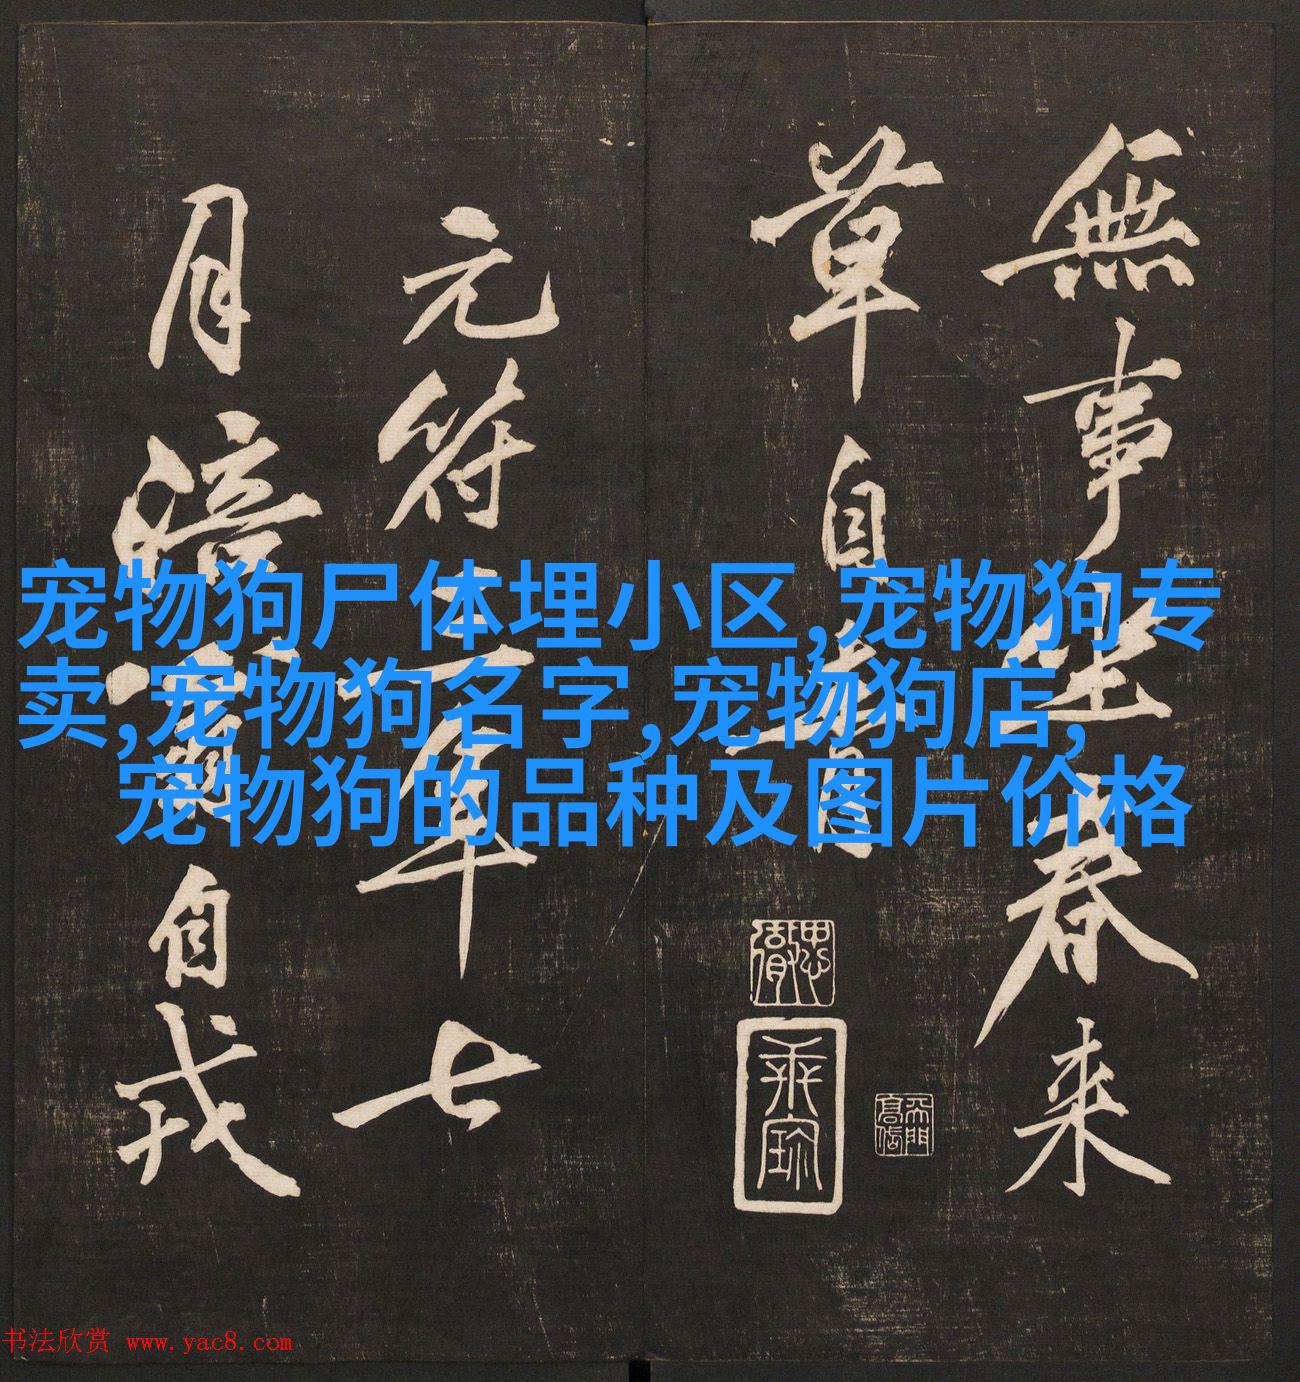 宠物狗尸体埋小区,宠物狗专
卖,宠物狗名字,宠物狗店,
宠物狗的品种及图片价格
無事坐春来
草自青
元符三年七
月涪翁自戎
书法欣赏 www.yac8.com